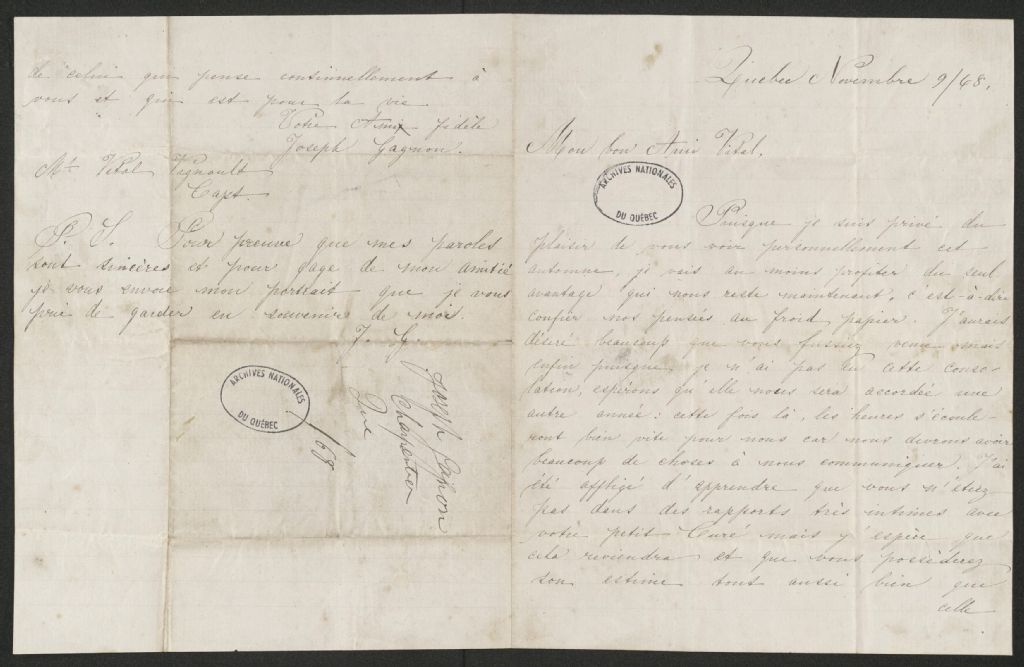 Quebec Novembre 9/68.
Mon bon Ami Vital,
ARCHIVES NATIONALES
DU QUÉBEC
Puisque je suis privé du
plaisir de vous voir personnellement cet
automne, je vais au moins profiter du seul
avantage qui nous reste maintenant, c'est-à-dire
confier nos pensés au froid papier. J'aurais
désiré beaucoup que vous fussiez venu mais
enfin puisque je n'ai pas eu cette conso-
lation, espérons qu'elle nous sera accordée une
autre année: cette fois là, les heures s'écoule-
ront bien vite pour nous car nous devrons avoir
beaucoup de choses à nous communiquer. J'ai
été affligé d'apprendre que vous n'étiez
pas dans des rapports très intimes avec
votre petit Curé mais j'espère que
cela reviendra et que vous posséderez
son estime tout aussi bien que
celle
de celui qui pense continuellement à
vous et qui est pour la vie
Votre Ami fidèle
Joseph Gagnon.
Mr. Vital Vignault
Capt.
P. S. Pour preuve que mes paroles
sont sincères et pour gage de mon amitié
je vous envoie mon portrait que je vous
prie de garder en souvenir de moi.
J. G.
ARCHIVES NATIONALES
DU QUÉBEC
Joseph Gagnon
Charpentier
Que
/68